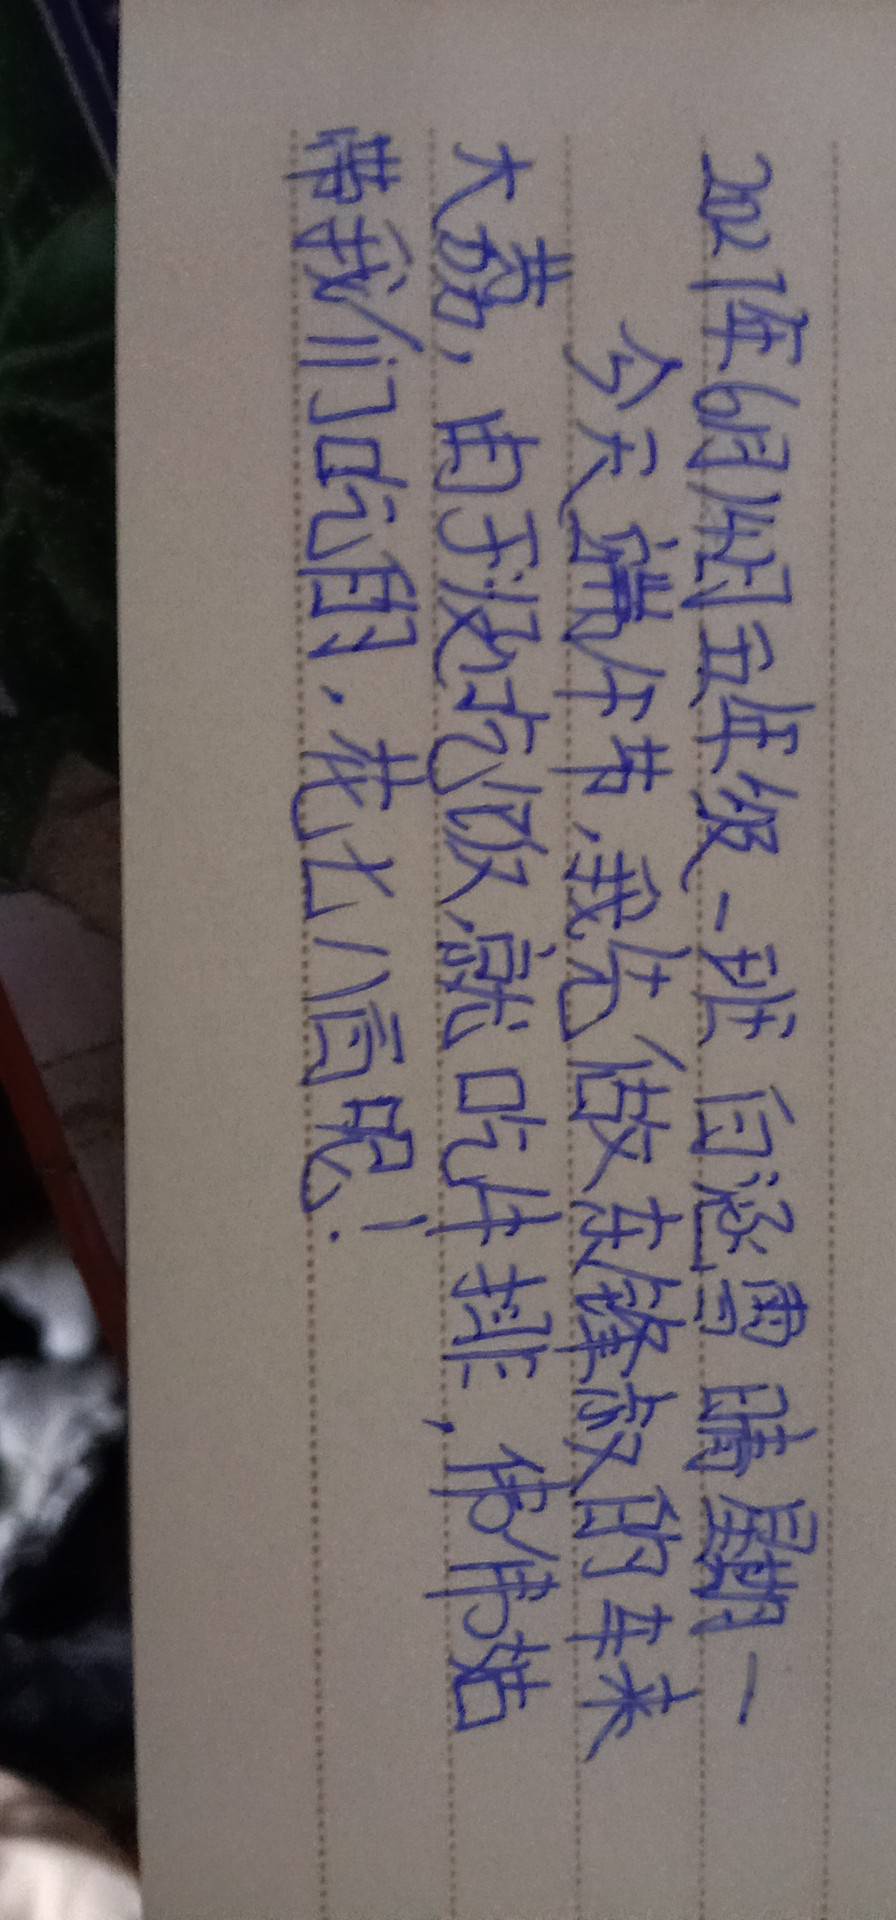 2021年6月14日五年级一班 白涵雪 晴 星期一
今天端午节，我先做东锋叔的车来
大嘉，由于没吃饭，就吃牛排，伟伟姑
带我们吃的，花七八百呢！